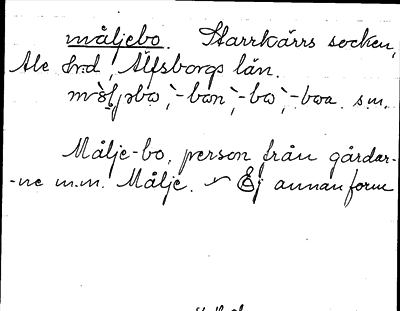 måljebo. Starrkärrs socken,
Ale hrd, Älfsborgs län.
-bon, -bo, -boa. sm.
Målje-bo, person från gårdar-
-ne m.m. Målje. ~ Ej annan form